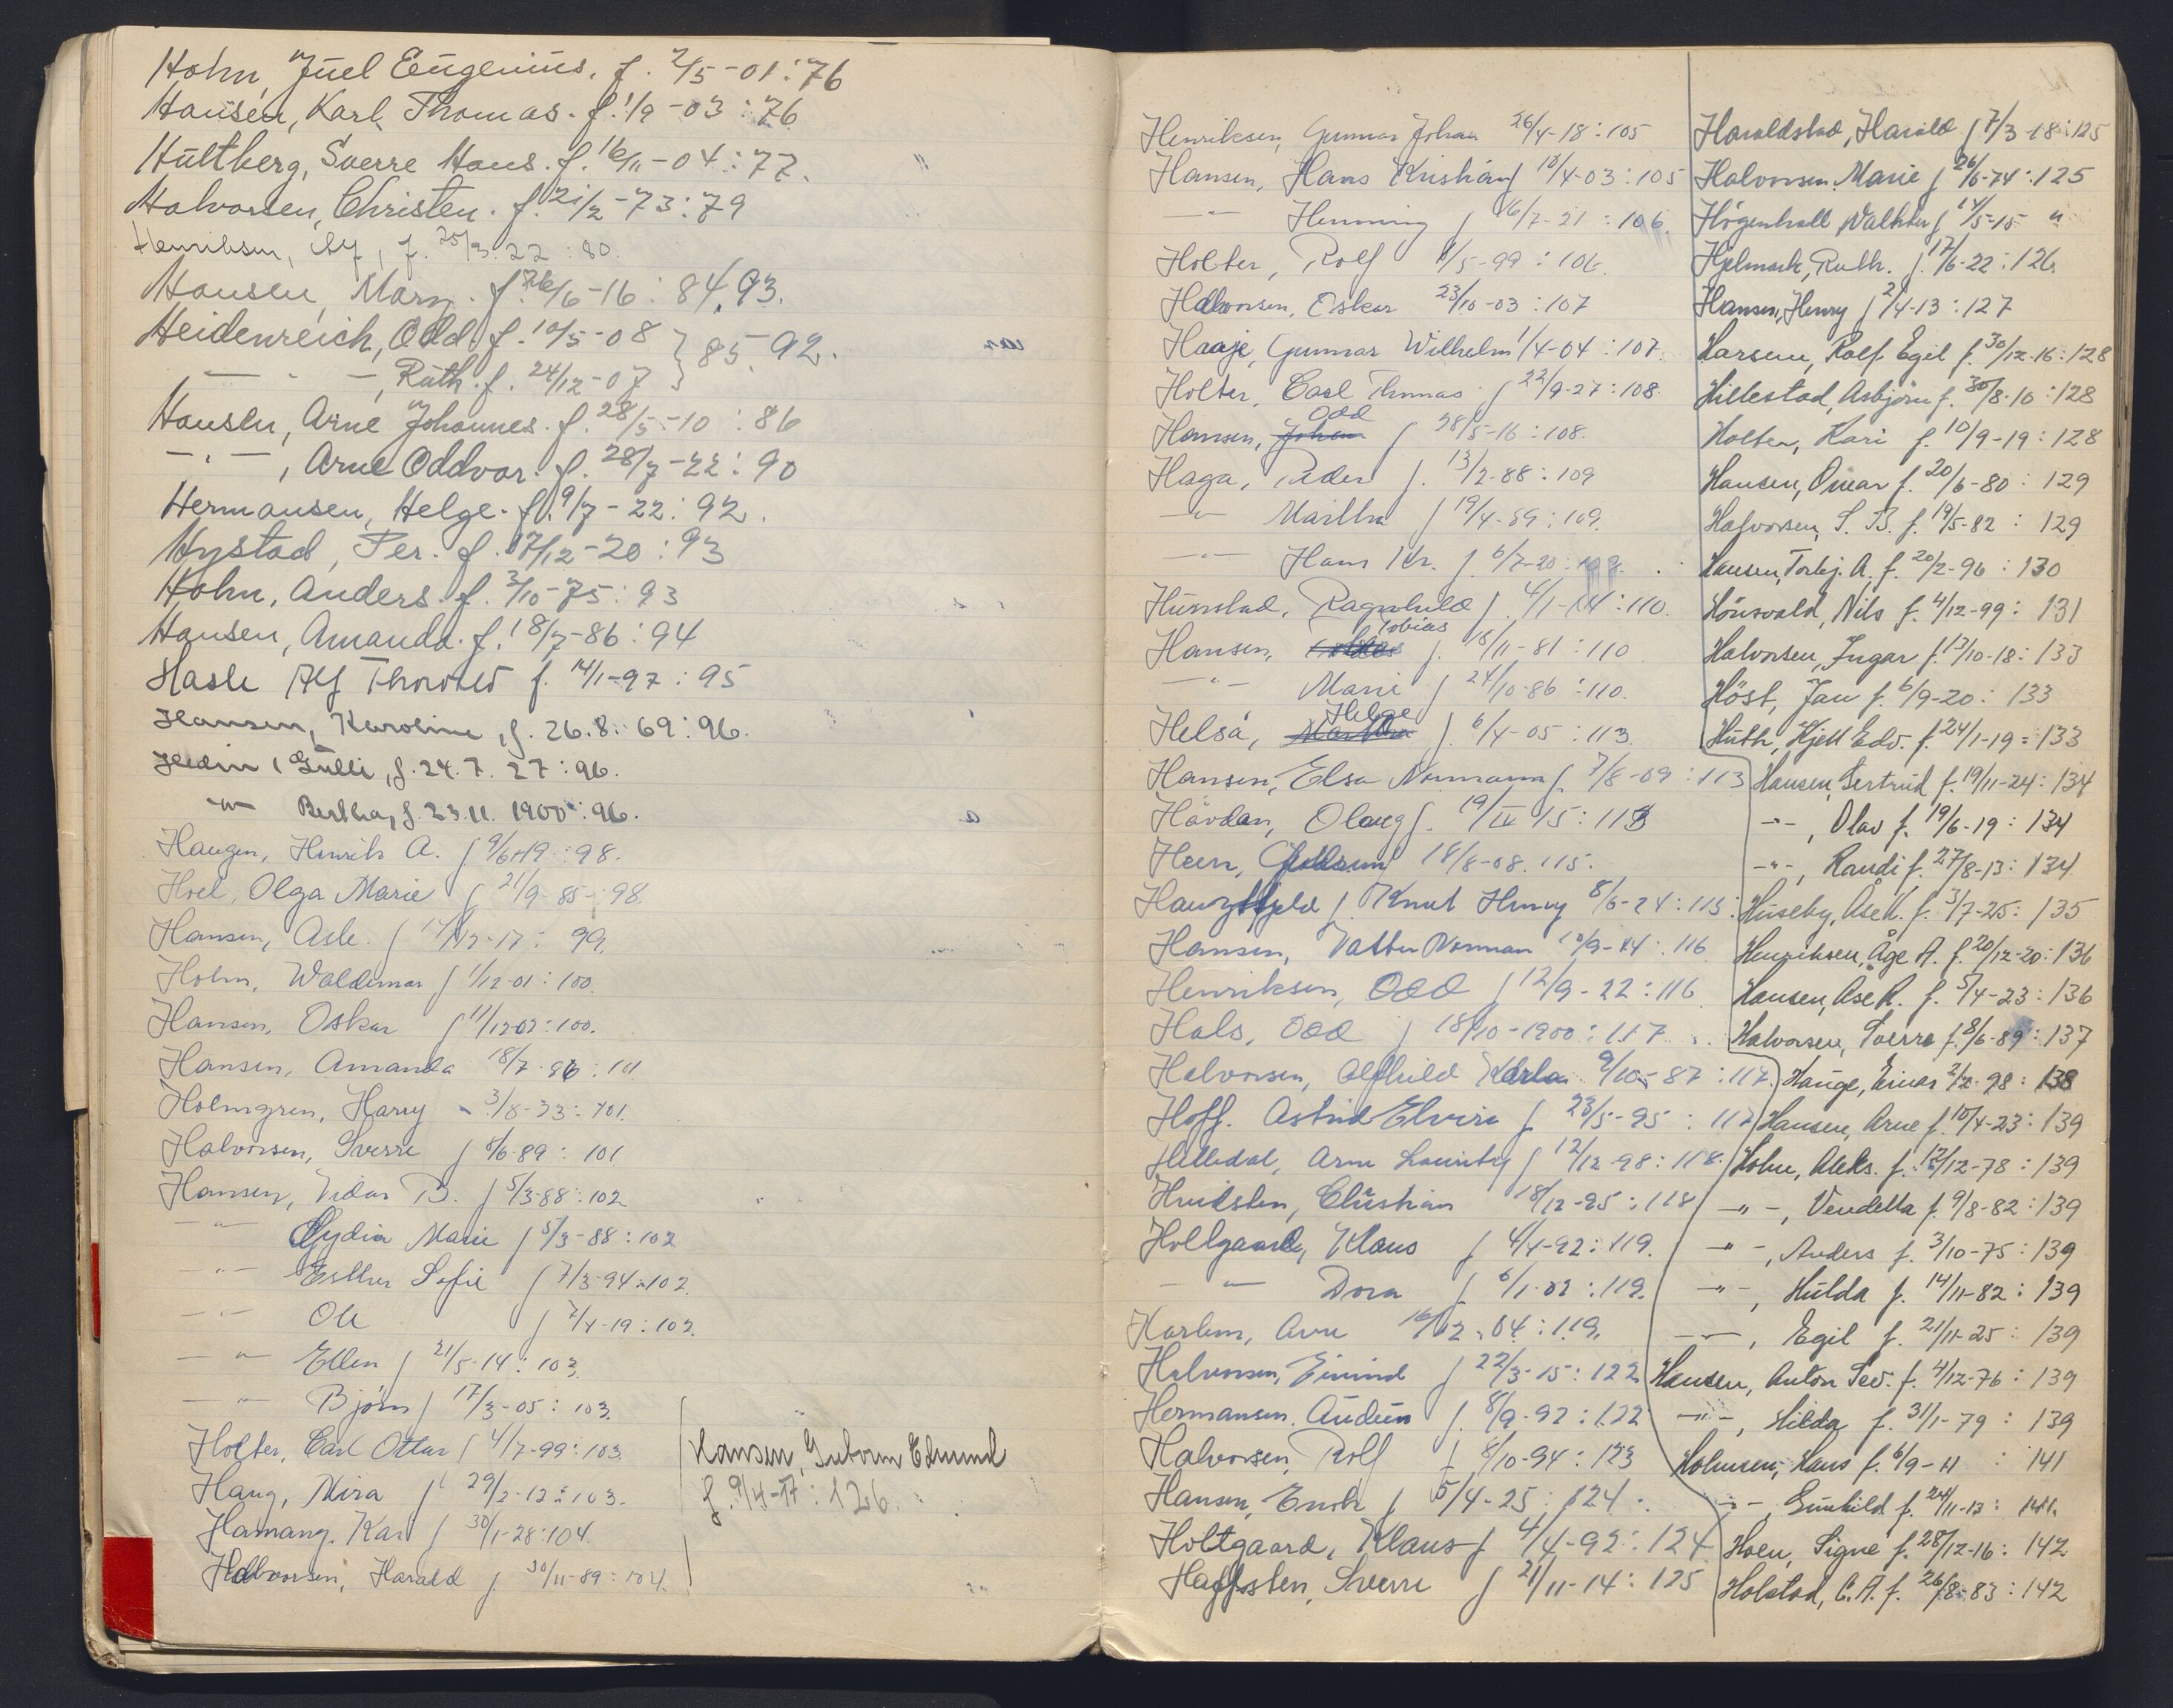 Holm, Juel Eugenius. f. 2/5-01:76
Hansen, Karl Thomas. f. 1/9-03:76
Hultberg, Sverre Hans. f. 16/11-04:77.
Halvorsen, Christen. f. 21/2-73:79
Henriksen, Alf, f. 25/3.22:80.
Hansen, Mary. f. 26/6-16:84,93.
Heidenreich, Odd. f. 10/5-08 } 85, 92.
— " —, Ruth. f. 24/12-07
Hansen, Arne Johannes. f. 28/5-10:86
— " —, Arne Oddvar. f. 28/7-22:90
Hermansen, Helge. f. 9/7-22:92.
Hystad, Per. f. 17/12-20:93
Holm, Anders. f. 3/10-75:93
Hansen, Amanda. f. 18/7-86:94
Hasle Alf Thorolf f. 14/1-97:95
Hansen, Karoline, f. 26.8.69:96.
Hedin, Gulli, f. 24.7.27:96.
—"— Bertha, f. 23.11.1900:96.
Haugen, Henrik A. f 9/6-19:98.
Hoel, Olga Marie f 21/9-85:98.
Hansen, Asle. f 14/12-17: 99.
Holm, Waldemar f 1/12-01:100.
Hansen, Oskar f 11/12-02:100.
Hansen, Amanda 18/7-86:101
Holmgren, Harry - 3/8-33:101.
Halvorsen, Sverre f 8/6-89:101
Hansen, Vidar B. f 5/3-88:102
— " — Lydia Marie f 5/3-88:102
— " — Esther Sofie f 7/3-94:102.
— " — Ole f 2/4-19:102.
— " — Ellen f 21/5-14:103.
— " — Bjørn f 17/3-05:103.
Holter, Carl Ottar f 4/7-99:103.
Haug, Mira f 29/2-12:103.
Hamang, Kari f 30/1-28:104.
Halvorsen, Harald f. 30/11-89:104.
Hansen, Guttorm Edmund
f. 9/4-17:126.
Henriksen, Gunnar Johan 26/4-18:105
Hansen, Hans Kristian f 18/4-03:105
— " — Henning f 16/7-21:106.
Holter, Rolf 8/5-99:106.
Halvorsen, Oskar 23/10-03:107
Haaje, Gunnar Wilhelm 1/4-04:107.
Holter, Carl Thomas f 22/9-27:108.
Odd
Hansen, Johan f 28/5-16:108.
Haga, Peder f. 13/2-88:109
— " — Martha f 19/4-89:109.
— " — Hans Kr. f. 6/7-20:109.
Hunstad, Ragnhild f. 4/1-14:110.
Tobias
Hansen, f. 18/11-81:110
— " — Marie f 24/10-86:110.
Helge
Helsa, Martha f. 6/4-05:113.
Hansen, Elsa Normann f. 7/8-09:113
Hovdan, Olaug f. 19/IV 15:113
Heen, 18/8-08.115.
f. Knut Henry 8/6-24:115.
Hansen, Valter Norman 10/9-14:116
Henriksen, Odd f 12/9-22:116
Hals, Odd f 18/10-1900:117.
Halvorsen, Alfhild Karla 9/10-87:117.
Hoff. Astrid Elvire f 23/5-95:117
Hilledal, Arne f 12/12-98:118.
Hvidsten, Christian 18/12-95:118
Holtgaard, Klaus f 4/4-92:119.
— " — Dora f 6/1-02:119.
Karlsen, Arne 16/12-04:119.
Halvorsen, Eivind f 22/3-15:122
Hermansen, Audun f. 8/9-92:122
Halvorsen, Rolf f 8/10-94:123
Hansen, Erik f 5/4-25:124.
Holtgaard, Klaus f 4/4-92:124
Haffsten, Sverre f 21/11-14:125
Haraldstad, Harald f 7/3-18:125
Halvorsen, Marie f 26/6-74:125
Högenhall Walther f 14/5-15 "
Hjelmark, Ruth. f. 17/6-22:126.
Hansen, Henry f 2/4-13:127
Harsem, Rolf Egil f. 30/12-16:128
Hillestad, Asbjörn f. 30/8-10:128
Holter, Kari f. 10/9-19:128
Hansen, Omar f. 20/6-80:129
Halvorsen, S. B. f. 19/5-82:129
Hansen, Torbj. A. f. 20/2-96:130
Hönsvald, Nils f. 4/12-99:131
Halvorsen, Ingar f. 13/10-18:133
Höst, Jan f. 6/9-20:133
Huth, Kjell Edv. f. 24/1-19=133
Hansen, Gertrud f. 19/11-24:134
—"—, Olav f. 19/6-19:134
—"—, Randi f. 27/8-13:134
Huseby, Åse K. f. 3/7-25:135
Henriksen, Åge A. f. 20/12-20:136
Hansen, Åse R. f. 5/4-23:136
Halvorsen, Sverre f. 8/6-89:137
Hauge, Einar 2/2-98:138
Hansen, Arne f. 10/4-23:139
Holm, Aleks. f. 12/12-78:139
—"—, Vendella f. 9/8-82:139
—"—, Anders f. 3/10-75:139
—"—, Hulda f. 14/11-82:139
—"—, Egil f. 21/11-25:139
Hansen, Anton Sev. f. 4/12-76:139
—"—, Hilda f. 31/1-79:139
Holmsen, Hans f. 6/9-11:141
—"—, Gunhild f. 24/11-13:141.
Hoen, Signe f. 28/12-16:142
Holstad, C. A. f. 26/8-83:142